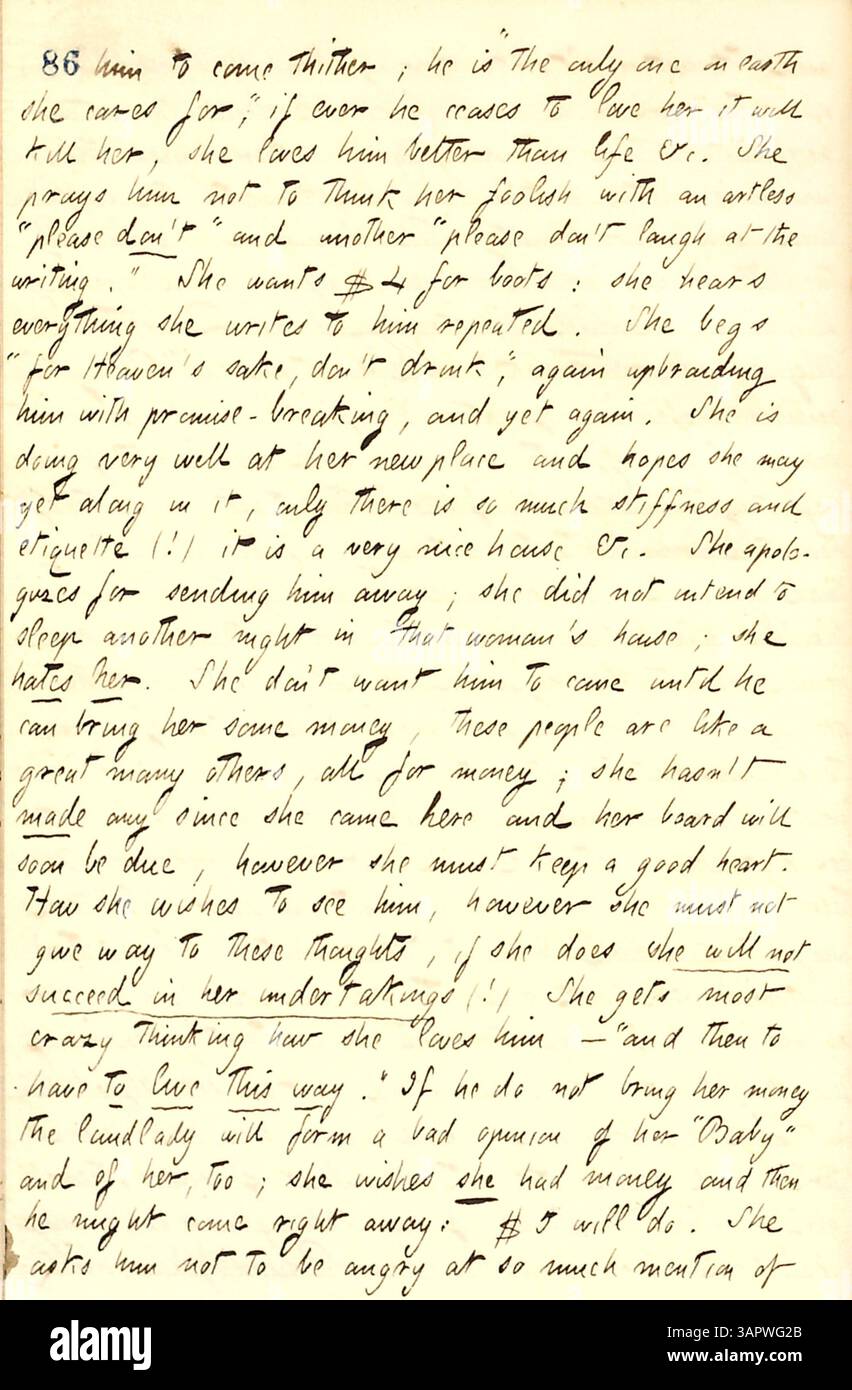 86 him to come thither ; he is "the only one on earth
she cares for," if ever he ceases to love her it will
kill her, she loves him better than life &c. She
prays him not to think her foolish with an artless
"please don't" and another "please don't laugh at the
writing." She wants $4 for boots : she hears
everything she writes to him repeated. She begs
"for Heaven's sake, don't drink," again upbraiding
him with promise-breaking, and yet again. She is
doing very well at her new place and hopes she may
get along in it, only there is so much stiffness and
etiquette (!) it is a very nice house &c. She apolo-
gizes for sending him away ; she did not intend to
sleep another night in that woman's house ; she
hates her. She don't want him to come until he
can bring her some money, these people are like a
great many others, all for money ; she hasn't
made any since she came here and her board will
soon be due, however she must keep a good heart.
How she wishes to see him, however she must not
give way to these thoughts, if she does she will not
succeed in her undertakings (!) She gets most
crazy thinking how she loves him — "and then to
have to live this way." If he do not bring her money
the landlady will form a bad opinion of her "Baby"
and of her, too ; she wishes she had money and then
he might come right away : $5 will do. She
asks him not to be angry at so much mention of
alamy
Image ID: 3APWG2B
www.alamy.com